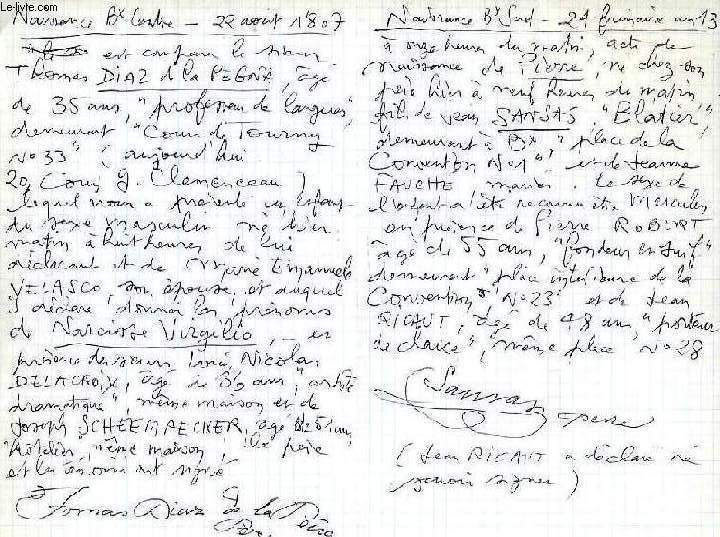 Le-livre.com
Naissance Bx Centre — 22 août 1807
est comparu le sieur
Thomas DIAZ de la PEÑA, âgé
de 35 ans, "professeur de langues",
demeurant "Cours de Tourny
N°33" (aujourd'hui
20, Cours G. Clemenceau)
lequel nous a présenté un enfant
du sexe masculin né hier
matin à huit heures de lui
déclarant et de Emanuela
VELASCO, son épouse, et auquel
il déclare donner les prénoms
de Narcisse Virgilio, — en
présence des sieurs Nicolas
DELACROIX, âgé de 36 ans, "artiste
dramatique", même maison et de
Joseph SCHEEMPECKER, âgé de 51 ans,
même maison, le père
et les témoins ont signé
Tomas Diaz de la Peña
Naissance Bx Sud — 21 frimaire an 13
à onze heures du matin, acte de
naissance de Pierre, né chez son
père hier à neuf heures du matin,
fils de Jean SANSAS, "Blatier",
demeurant à Bx, "place de la
Convention N°1" et de Jeanne
FAUCHE, mariés. Le sexe de
l'enfant a été reconnu être masculin
en présence de Pierre ROBERT
âgé de 55 ans, "fondeur en suif"
demeurant "place intérieure de la
Convention, N°23" et de Jean
RICAUT, âgé de 48 ans, "porteur
de chaise", même place N°28
Sansas
père
(Jean RICAUT a déclaré ne
savoir signer)